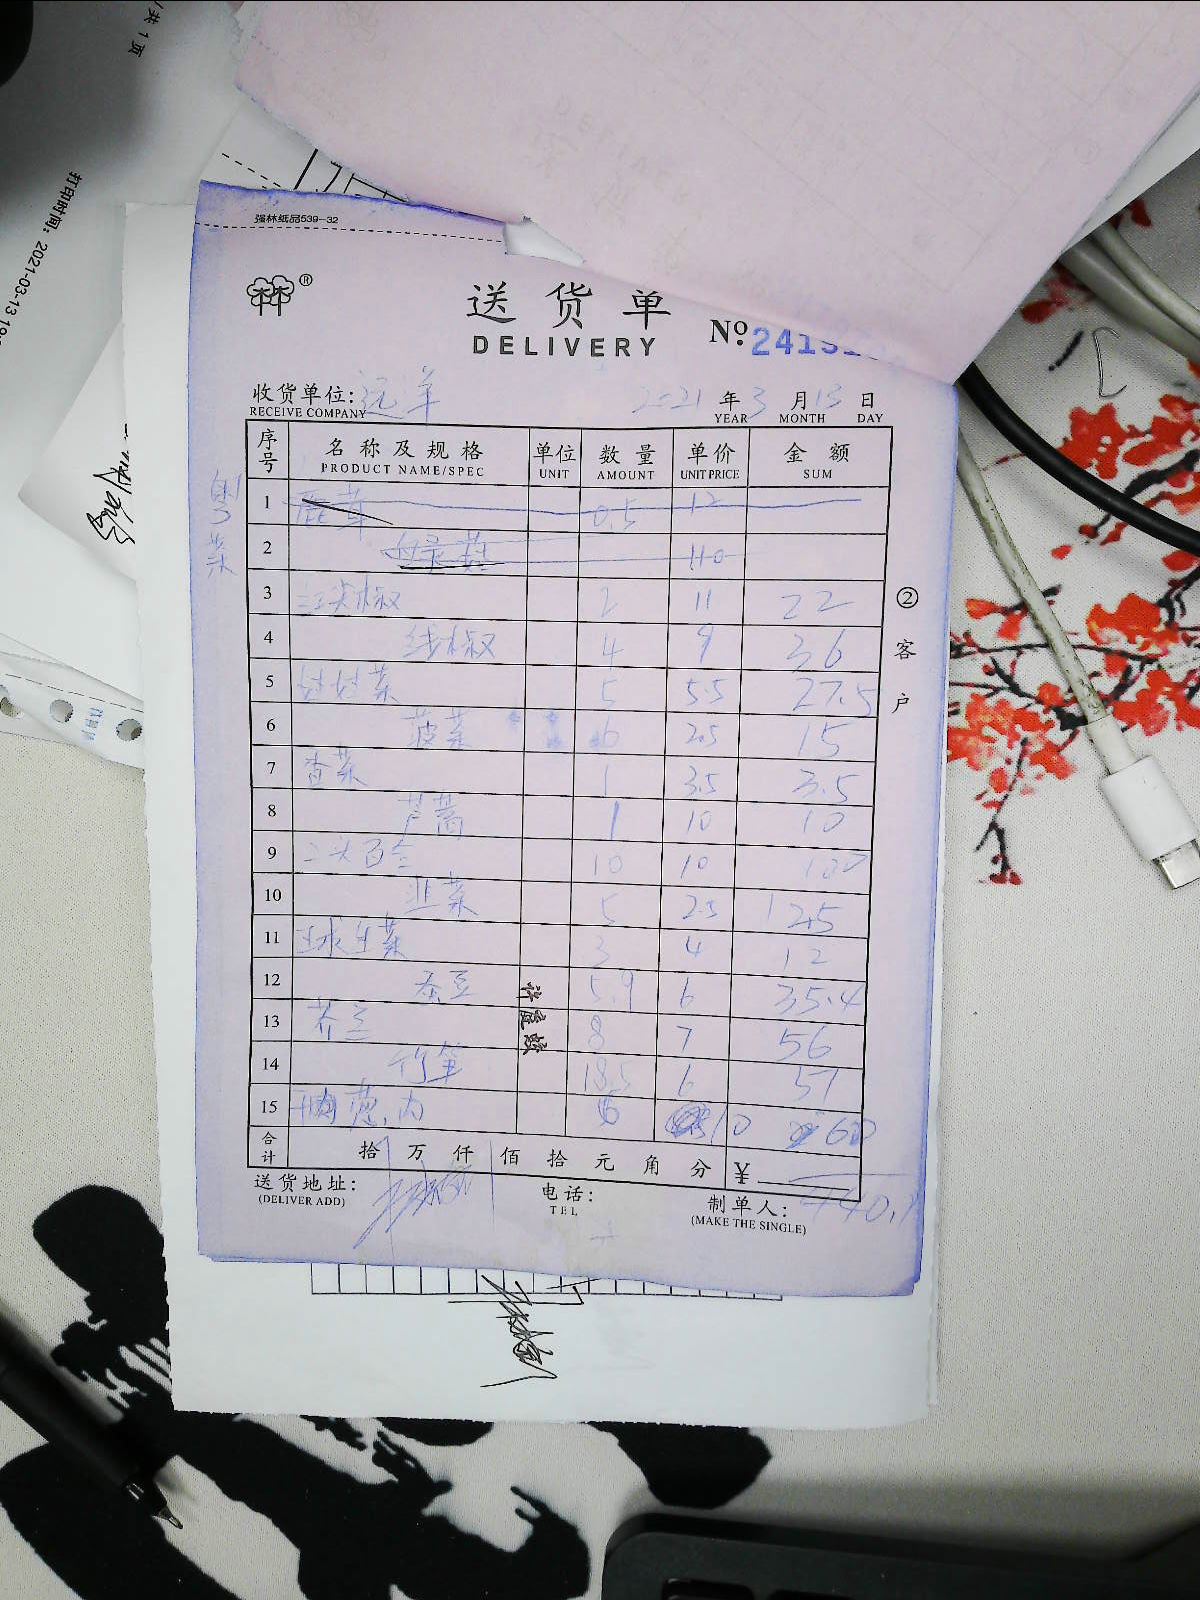 /共 1 页
打印时间: 2021-03-13 19:
强林纸品539-32
®
送货单
DELIVERY
No. 2419
收货单位: 远洋 2021 年 3 月 13 日
RECEIVE COMPANY YEAR MONTH DAY
序号 名称及规格 单位 数量 单价 金额
PRODUCT NAME/SPEC UNIT AMOUNT UNIT PRICE SUM
1 鹿茸 0.5 12
2 110
3 尖椒 2 11 22
4 线椒 4 9 36
5 娃娃菜 5 5.5 27.5
6 菠菜 6 2.5 15
7 香菜 1 3.5 3.5
8 芦蒿 1 10 10
9 二头百合 10 10 100
10 韭菜 5 2.5 12.5
11 球生菜 3 4 12
12 蚕豆 5.9 6 35.4
13 芥兰 8 7 56
14 竹笋 18.5 6 57
15 6 10 60
合计 拾 万 仟 佰 拾 元 角 分 ¥
440.
送货地址: 电话: 制单人:
(DELIVER ADD) TEL (MAKE THE SINGLE)
②客户